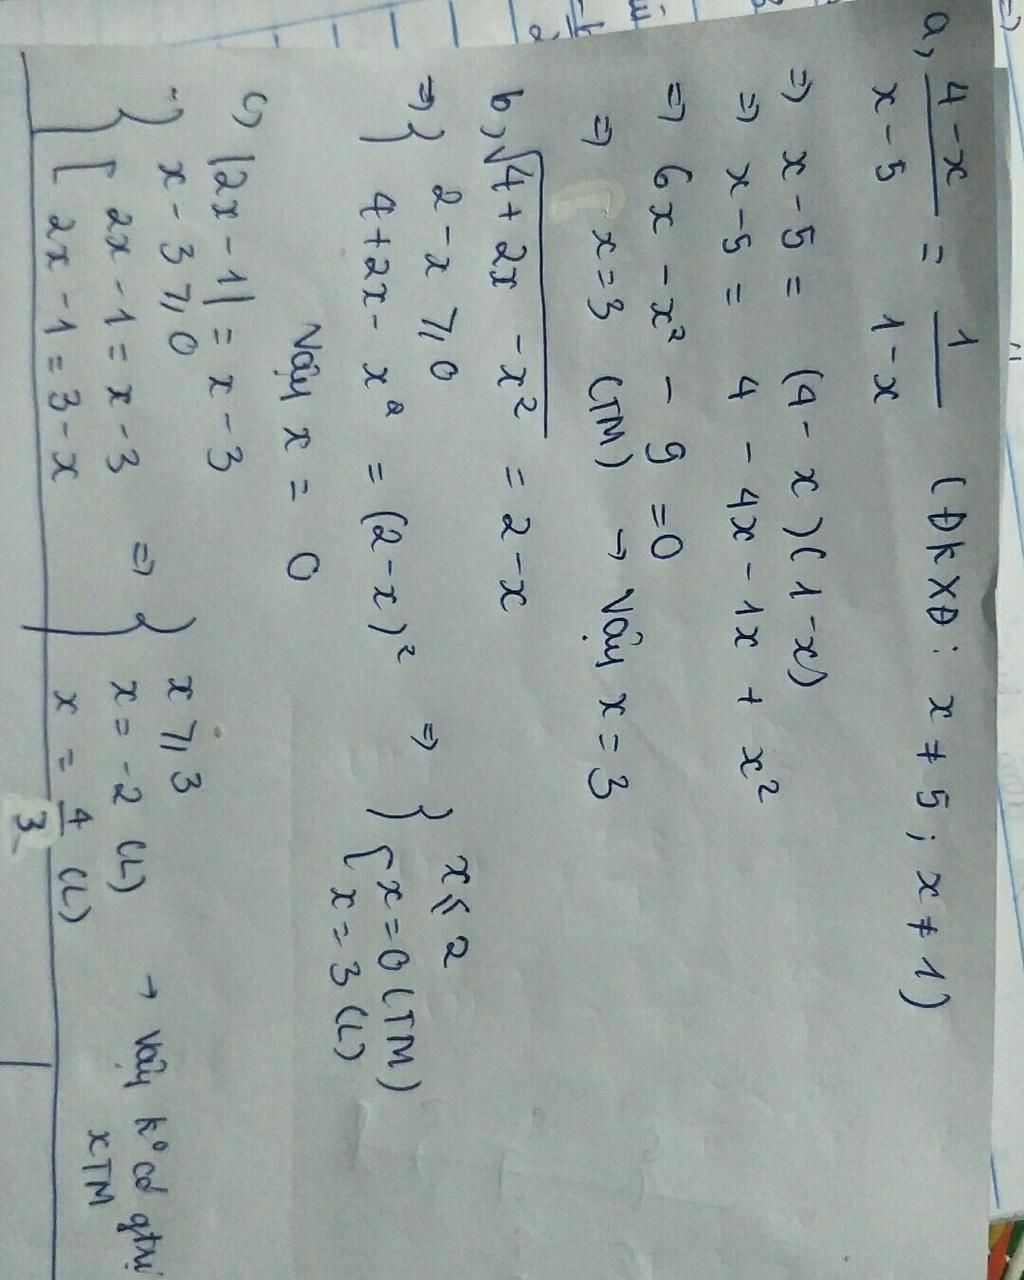 a, 4-x / x-5 = 1 / 1-x (ĐKXĐ: x ≠ 5; x ≠ 1)
=> x-5 = (4-x)(1-x)
=> x-5 = 4 - 4x - 1x + x²
=> 6x - x² - 9 = 0
=> x = 3 (TM) → Vậy x = 3
b, √4+2x-x² = 2-x
=> { 2-x ≥ 0
4+2x-x² = (2-x)²
=> { x ≤ 2
[ x = 0 (TM)
x = 3 (L)
Vậy x = 0
c, |2x-1| = x-3
=> { x-3 ≥ 0
[ 2x-1 = x-3
2x-1 = 3-x
=> { x ≥ 3
x = -2 (L)
x = 4/3 (L)
→ Vậy k° có gtrị
x TM